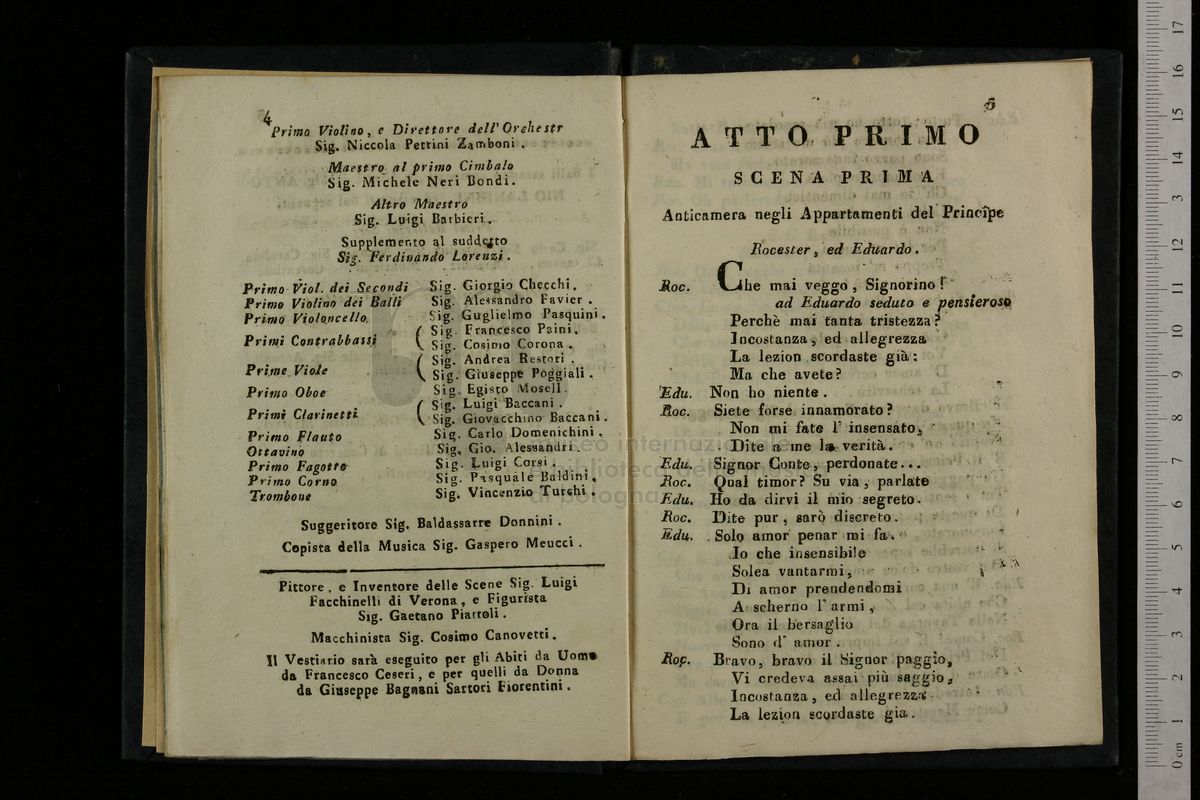 4
Primo Violino, e Direttore dell' Orchestr
Sig. Niccola Petrini Zamboni.
Maestro al primo Cimbalo
Sig. Michele Neri Bondi.
Altro Maestro
Sig. Luigi Barbieri.
Supplemento al suddetto
Sig. Ferdinando Lorenzi.
Primo Viol. dei Secondi Sig. Giorgio Checchi.
Primo Violino dei Balli Sig. Alessandro Favier.
Primo Violoncello Sig. Guglielmo Pasquini.
Primi Contrabbassi ( Sig. Francesco Paini.
Sig. Cosimo Corona.
Prime Viole ( Sig. Andrea Restori.
Sig. Giuseppe Poggiali.
Primo Oboe Sig. Egisto Mosell.
Primi Clarinetti ( Sig. Luigi Baccani.
Sig. Giovacchino Baccani.
Primo Flauto Sig. Carlo Domenichini.
Ottavino Sig. Gio. Alessandri.
Primo Fagotto Sig. Luigi Corsi.
Primo Corno Sig. Pasquale Baldini,
Trombone Sig. Vincenzio Turchi.
Suggeritore Sig. Baldassarre Donnini.
Copista della Musica Sig. Gaspero Meucci.
Pittore, e Inventore delle Scene Sig. Luigi
Facchinelli di Verona, e Figurista
Sig. Gaetano Piattoli.
Macchinista Sig. Cosimo Canovetti.
Il Vestiario sarà eseguito per gli Abiti da Uomo
da Francesco Ceseri, e per quelli da Donna
da Giuseppe Bagnani Sartori Fiorentini.
5
ATTO PRIMO
SCENA PRIMA
Anticamera negli Appartamenti del Principe
Rocester, ed Eduardo.
Roc. Che mai veggo, Signorino!
ad Eduardo seduto e pensieroso
Perchè mai tanta tristezza?
Incostanza, ed allegrezza
La lezion scordaste già:
Ma che avete?
Edu. Non ho niente.
Roc. Siete forse innamorato?
Non mi fate l' insensato,
Dite a me la verità.
Edu. Signor Conte, perdonate...
Roc. Qual timor? Su via, parlate
Edu. Ho da dirvi il mio segreto.
Roc. Dite pur, sarò discreto.
Edu. Solo amor penar mi fa.
Io che insensibile
Solea vantarmi,
Di amor prendendomi
A scherno l' armi,
Ora il bersaglio
Sono d' amor.
Roc. Bravo, bravo il Signor paggio,
Vi credeva assai più saggio,
Incostanza, ed allegrezza
La lezion scordaste gia.
museo internazionale
e biblioteca della musica
di bologna
0 cm 1 2 3 4 5 6 7 8 9 10 11 12 13 14 15 16 17